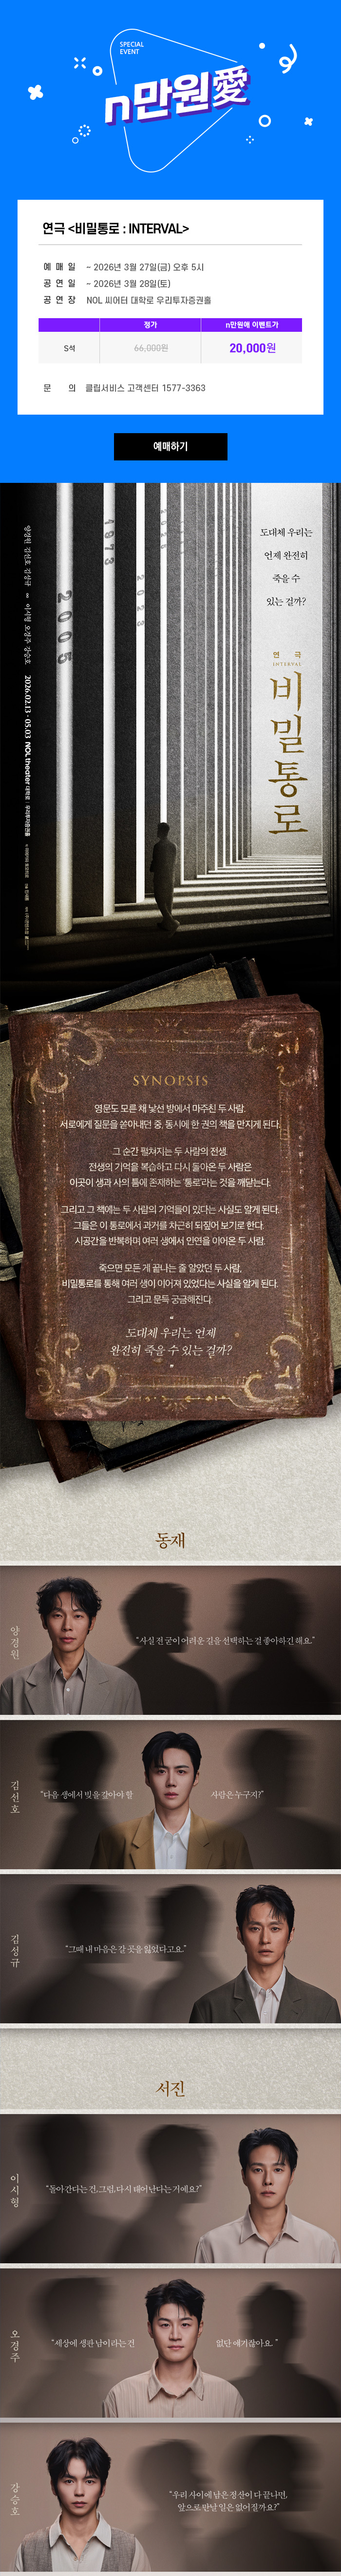 SPECIAL
EVENT
n만원愛
연극 <비밀통로 : INTERVAL>
예 매 일 ~ 2026년 3월 27일(금) 오후 5시
공 연 일 ~ 2026년 3월 28일(토)
공 연 장 NOL 씨어터 대학로 우리투자증권홀
정가 n만원애 이벤트가
S석 66,000원 20,000원
문 의 클립서비스 고객센터 1577-3363
예매하기
1873
2023
2005
도대체 우리는
언제 완전히
죽을 수
있는 걸까?
연 극
INTERVAL
비밀통로
양경원 김선호 김성규 ∞ 이시형 오경주 강승호
2026.02.13 - 05.03 NOL theater 대학로 우리투자증권홀
SYNOPSIS
영문도 모른 채 낯선 방에서 마주친 두 사람.
서로에게 질문을 쏟아내던 중, 동시에 한 권의 책을 만지게 된다.
그 순간 펼쳐지는 두 사람의 전생.
전생의 기억을 복습하고 다시 돌아온 두 사람은
이곳이 생과 사의 틈에 존재하는 '통로'라는 것을 깨닫는다.
그리고 그 책에는 두 사람의 기억들이 있다는 사실도 알게 된다.
그들은 이 통로에서 과거를 차근히 되짚어 보기로 한다.
시공간을 반복하며 여러 생에서 인연을 이어온 두 사람.
죽으면 모든 게 끝나는 줄 알았던 두 사람,
비밀통로를 통해 여러 생이 이어져 있었다는 사실을 알게 된다.
그리고 문득 궁금해진다.
“
도대체 우리는 언제
완전히 죽을 수 있는 걸까?
”
동재
양경원
“사실 전 굳이 어려운 길을 선택하는 걸 좋아하긴 해요.”
김선호
“다음 생에서 빚을 갚아야 할 사람은 누구지?”
김성규
“그때 내 마음은 갈 곳을 잃었다고요.”
서진
이시형
“돌아간다는 건, 그럼, 다시 태어난다는 거예요?”
오경주
“세상에 생판 남이라는 건 없단 얘기잖아요. ”
강승호
“우리 사이에 남은 정산이 다 끝나면,
앞으로 만날 일은 없어질까요?”